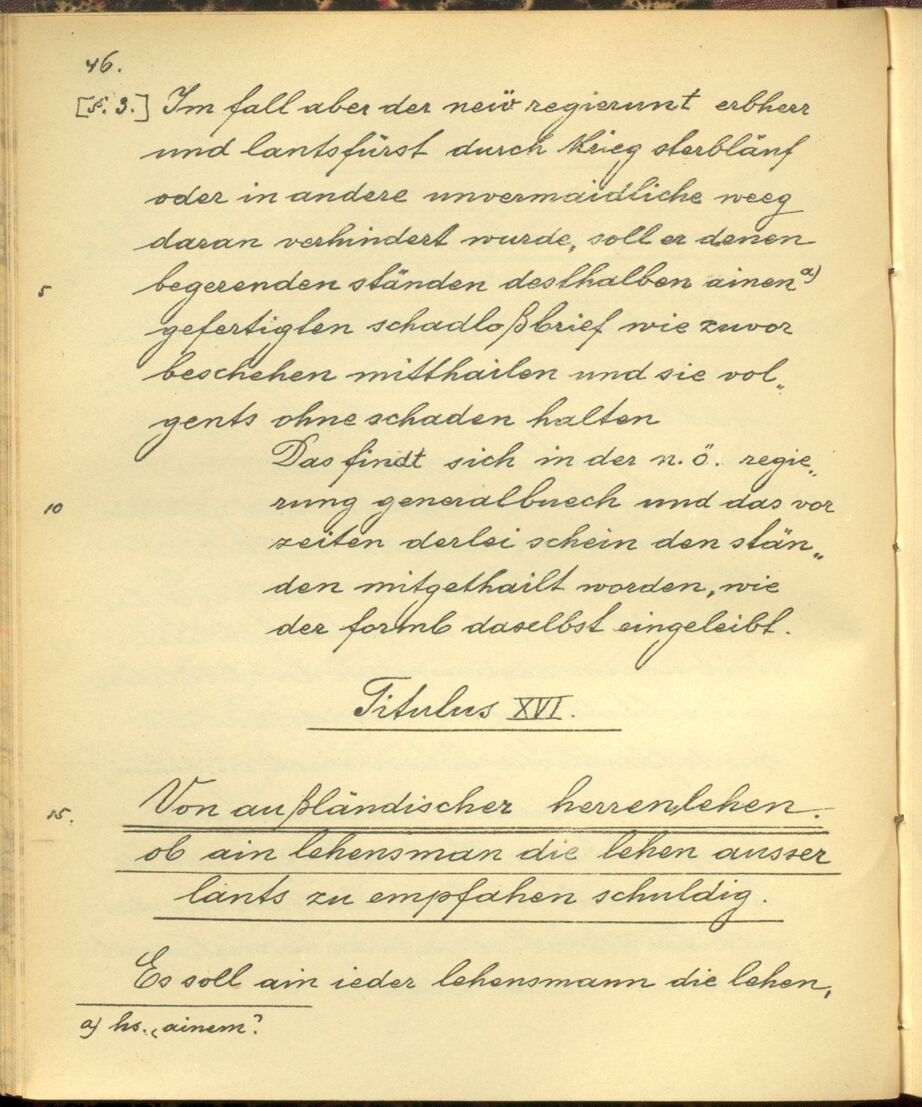 46.
[§. 3.] Im fall aber der neü regierunt erbherr
und lantsfürst durch krieg sterbläuf
oder in andere unvermaidliche weeg
daran verhindert wurde, soll er denen
5 begerenden ständen desthalben ainen a)
gefertigten schadloßbrief wie zuvor
beschehen mitthailen und sie vol„
gents ohne schaden halten
Das findt sich in der n. ö. regie„
10 rung generalbuech und das vor
zeiten derlei schein den stän„
den mitgethailt worden, wie
der formb daselbst eingeleibt.
Titulus XVI.
15. Von außländischer herren lehen.
ob ain lehensman die lehen ausser
lants zu empfahen schuldig.
Es soll ain ieder lehensmann die lehen,
a) hs. „ainem?